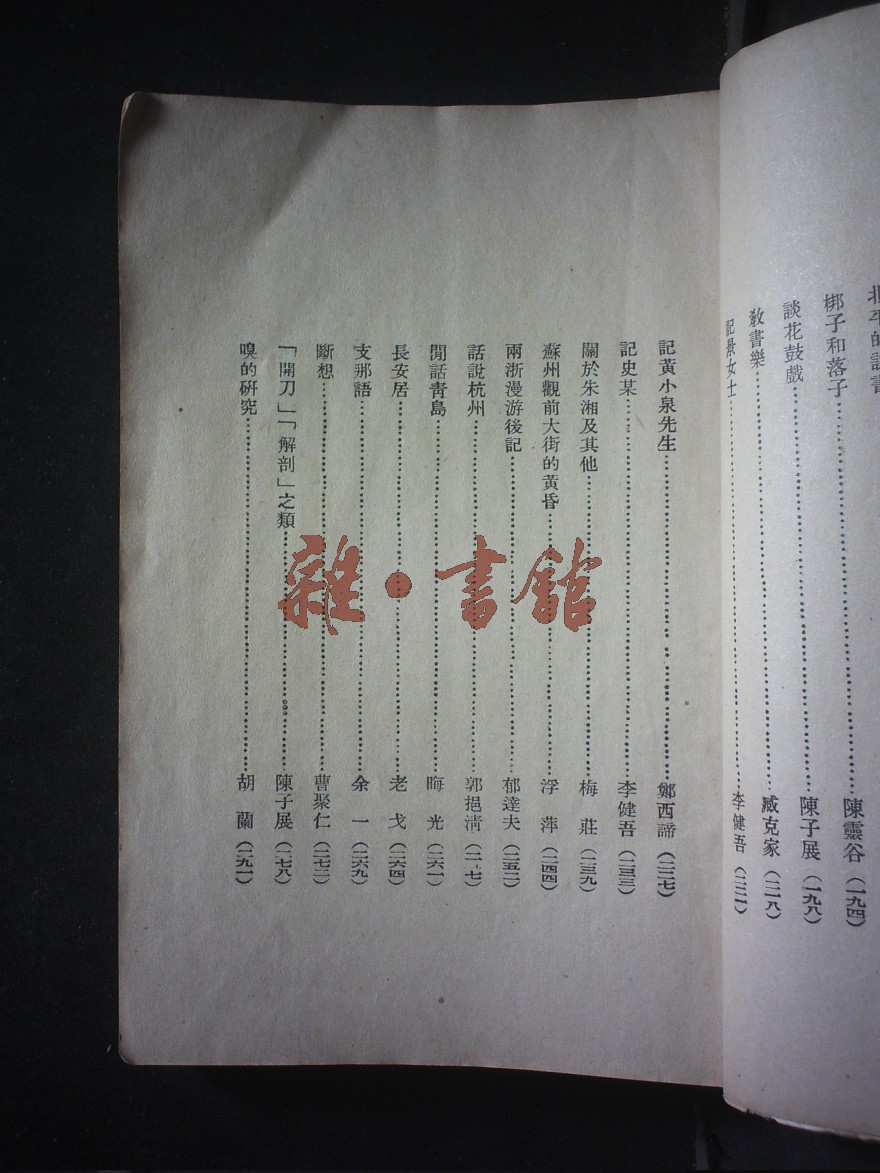 梆子和落子……陳靈谷（一九四）
談花鼓戲……陳子展（一九八）
教書樂……臧克家（二一八）
記景女士……李健吾（二二一）
記黃小泉先生……鄭西諦（二二七）
記史某……李健吾（二三三）
關於朱湘及其他……梅莊（二三九）
蘇州觀前大街的黃昏……浮萍（二四四）
兩浙漫游後記……郁達夫（二五二）
話說杭州……郭挹清（二·七）
閒話靑島……晦光（二六一）
長安居……老戈（二六四）
支那語……余一（二六九）
斷想……曹聚仁（二七二）
「開刀」「解剖」之類……陳子展（二七八）
嗅的研究……胡蘭（二九一）
雜·書館